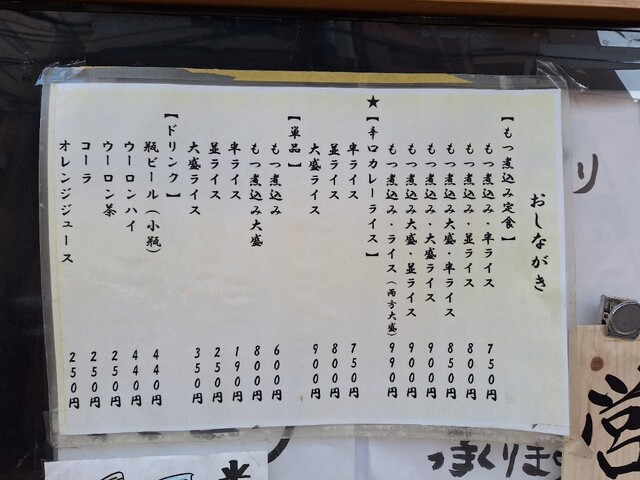 おしながき
【もつ煮込み定食】
もつ煮込み・半ライス 750円
もつ煮込み・並ライス 800円
もつ煮込み大盛・半ライス 850円
もつ煮込み・大盛ライス 900円
もつ煮込み大盛・並ライス 900円
もつ煮込み・ライス(両方大盛) 990円
★【辛口カレーライス】
半ライス 750円
並ライス 800円
大盛ライス 900円
【単品】
もつ煮込み 600円
もつ煮込み大盛 800円
半ライス 190円
並ライス 250円
大盛ライス 350円
【ドリンク】
瓶ビール(小瓶) 440円
ウーロンハイ 440円
ウーロン茶 250円
コーラ 250円
オレンジジュース 250円
り
営